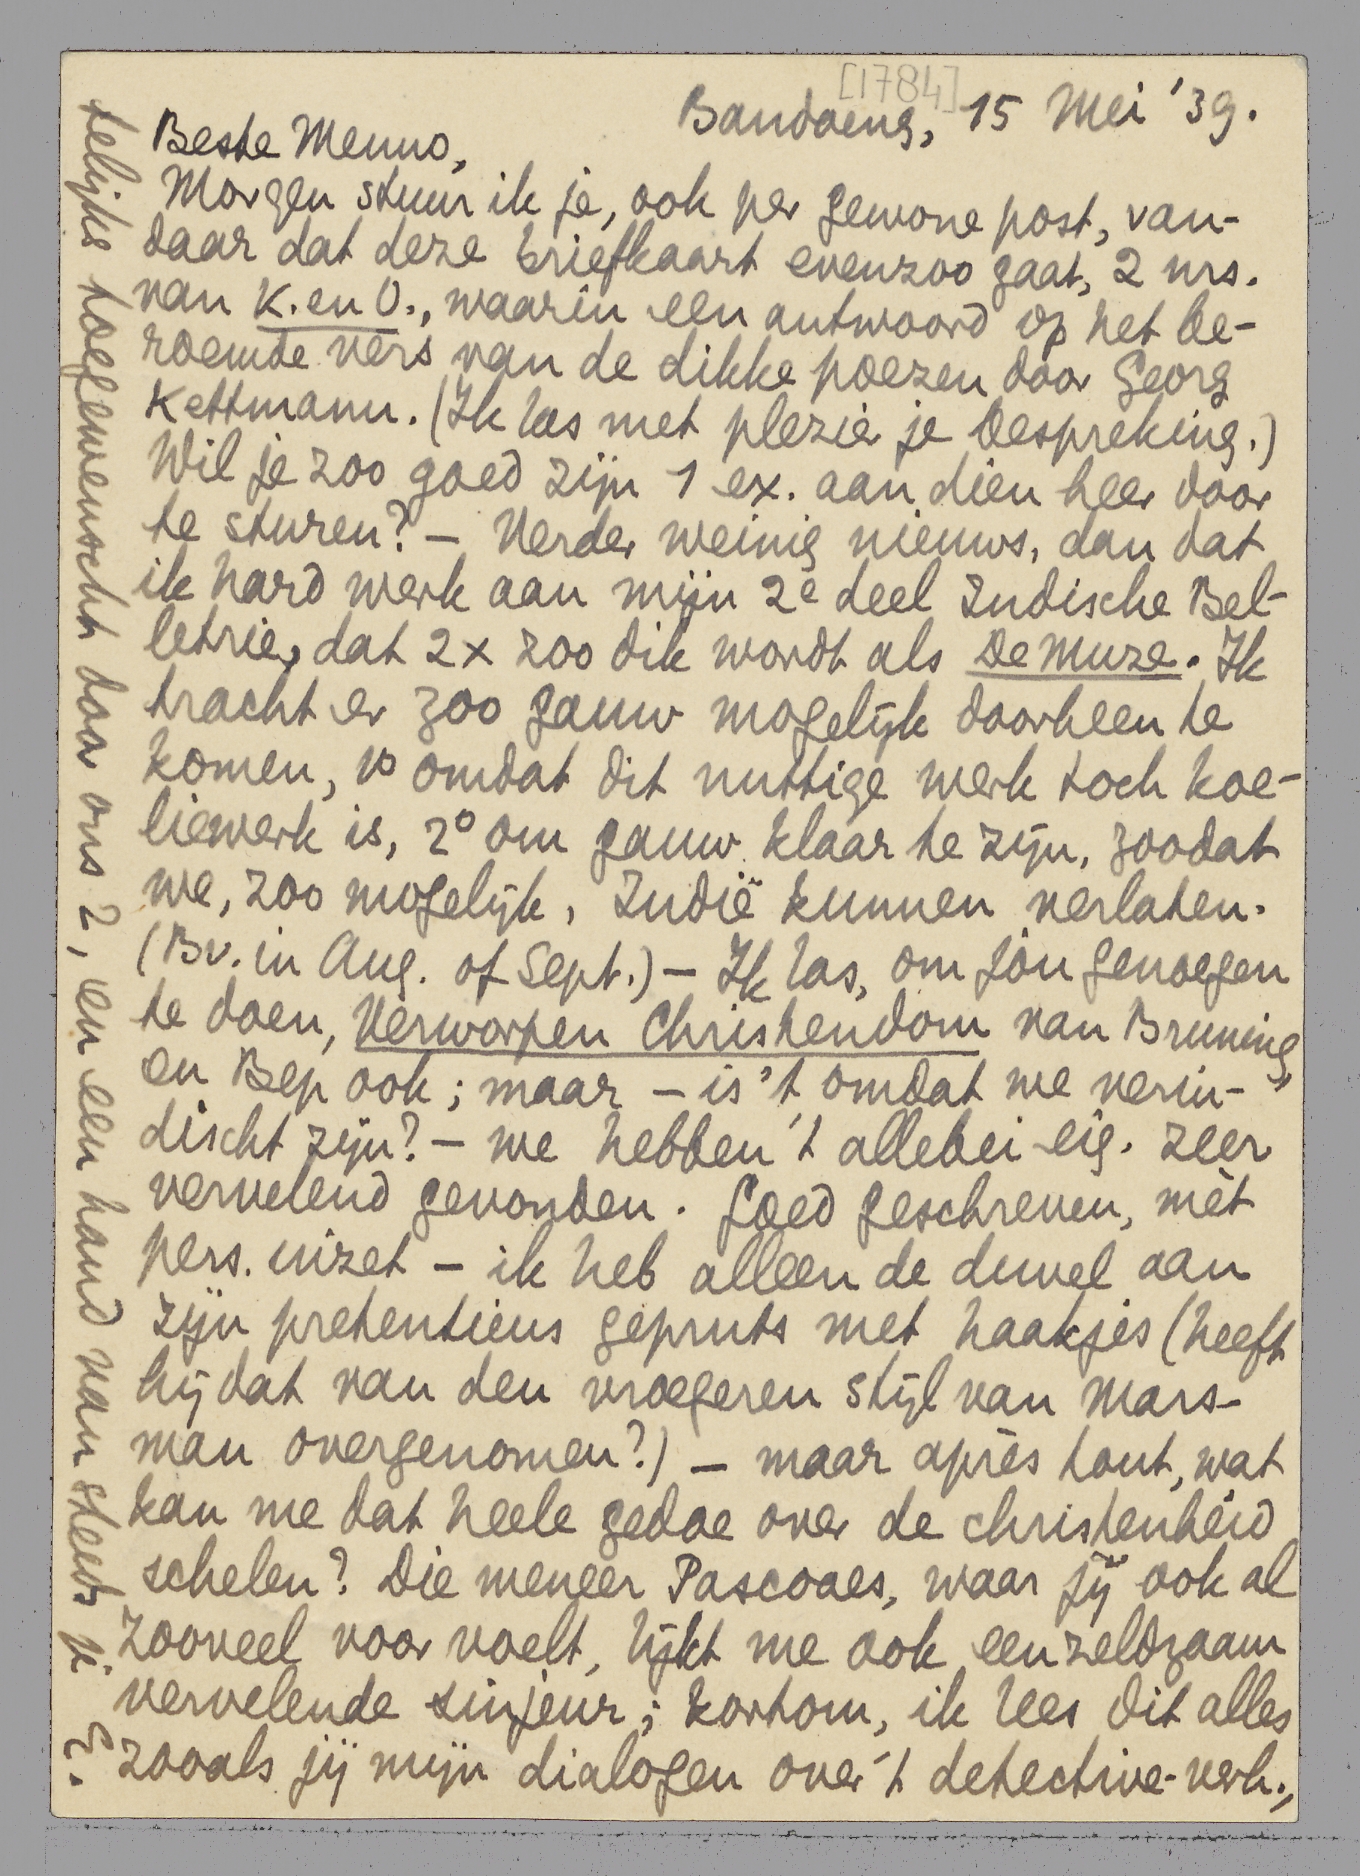 [1784]
Bandoeng, 15 Mei '39.
Beste Menno,
Morgen stuur ik je, ook per gewone post, van-
daar dat deze briefkaart evenzoo gaat, 2 nrs.
van K. en O., waarin een antwoord op het be-
roemde vers van de dikke poezen door Georg
Kettmann. (Ik las met plezier je bespreking.)
Wil je zoo goed zijn 1 ex. aan dien heer door
te sturen? — Verder weinig nieuws, dan dat
ik hard werk aan mijn 2e deel Indische Bel-
letrie, dat 2 x zoo dik wordt als De Muze. Ik
tracht er zoo gauw mogelijk doorheen te
komen, 1o omdat dit nuttige werk toch koe-
liewerk is, 2o om gauw klaar te zijn, zoodat
we, zoo mogelijk, Indië kunnen verlaten.
(Bv. in Aug. of Sept.) — Ik las, om jòu genoegen
te doen, Verworpen Christendom van Bruning,
en Bep ook; maar — is 't omdat we verin-
discht zijn? — we hebben 't allebei eig. zeer
vervelend gevonden. Goed geschreven, mèt
pers. inzet — ik heb alleen de duvel aan
zijn pretentieus gepruts met haakjes (heeft
hij dat van den vroegeren stijl van Mars-
man overgenomen?) — maar après tout, wat
kan me dat heele gedoe over de christenheid
schelen? Die meneer Pascoaes, waar jij ook al
zooveel voor voelt, lijkt me ook een zeldzaam
vervelende sinjeur; kortom, ik lees dit alles
zooals jij mijn dialogen over 't detective-verh.,
telijks toegewenscht door ons 2, en een hand van steeds je E.